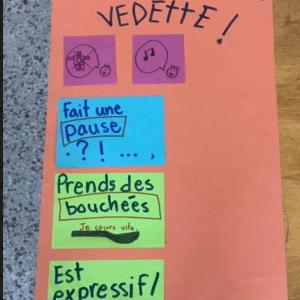 VEDETTE!
Fait une
pause
. ? ! ... ,
Prends des
bouchées
Je cours vite.
Est
expressif/